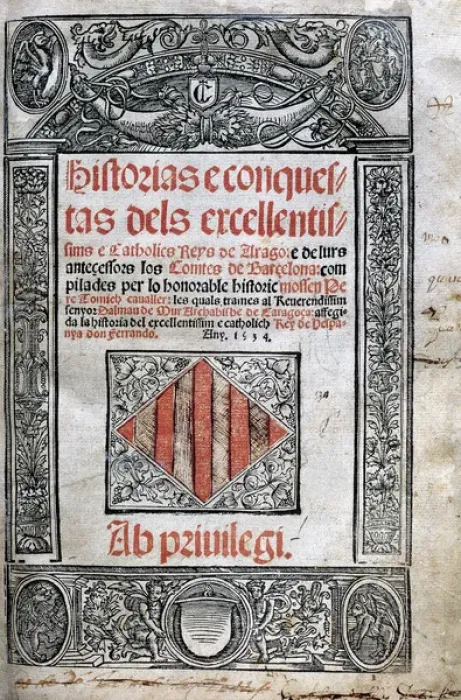 Historias e conques/
tas dels excellentis/
sims e Catholics Reys de Arago: e de lurs
antecessors los Comtes de Barcelona: com
pilades per lo honorable historic mossen Pe
re Tomich cavaller: les quals trames al Reuerendissim
senyor Dalmau de Mur Archabisbe de Caragoça: affegi
da la historia del excellentissim e catholich Rey de Hespa
nya don Ferrando. Any. 1534.
Ab priuilegi.